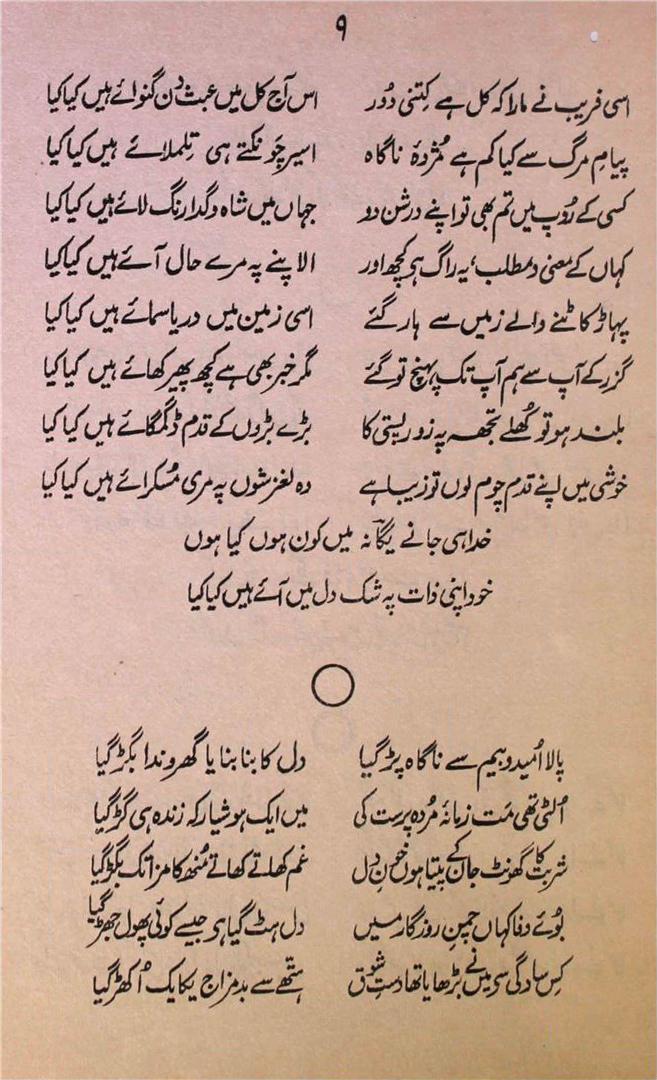 ۹
اسی فریب نے مارا کہ کل ہے کِتنی دُور اس آج کل میں عبث دن گنوائے ہیں کیا کیا
پیامِ مرگ سے کیا کم ہے مُژدۂ ناگاہ اسیر چَونکتے ہی تِلملائے ہیں کیا کیا
کسی کے رُوپ میں تم بھی تو اپنے درشن دو جہاں میں شاہ و گدا رنگ لائے ہیں کیا کیا
کہاں کے معنی و مطلب، یہ راگ ہی کچھ اور الاپنے پہ مرے حال آئے ہیں کیا کیا
پہاڑ کاٹنے والے زمیں سے ہار گئے اسی زمین میں دریا سمائے ہیں کیا کیا
گزر کے آپ سے ہم آپ تک پہنچ تو گئے مگر خبر بھی ہے کچھ پھیر کھائے ہیں کیا کیا
بلند ہو تو کُھلے تجھ پہ زور پستی کا بڑے بڑوں کے قدم ڈگمگائے ہیں کیا کیا
خوشی میں اپنے قدم چوم لوں تو زیبا ہے وہ لغزشوں پہ مری مُسکرائے ہیں کیا کیا
خدا ہی جانے یگانہ میں کون ہوں کیا ہوں
خود اپنی ذات پہ شک دل میں آئے ہیں کیا کیا
پالا اُمید و بیم سے ناگاہ پڑ گیا دل کا بنا بنایا گھروندا بگڑ گیا
اُلٹی تھی مَت زمانۂ مُردہ پرست کی میں ایک ہوشیار کہ زندہ ہی گڑ گیا
شربت کا گھونٹ جان کے پیتا ہوں خونِ دل غم کھاتے کھاتے مُنھ کا مزا تک بگڑ گیا
بُوئے وفا کہاں چمنِ روزگار میں دل ہٹ گیا ہی جیسے کوئی پھول جھڑ گیا
کِس سادگی سی میں نے بڑھایا تھا دستِ شوق ہتھے سے بدمزاج یکایک اُکھڑ گیا